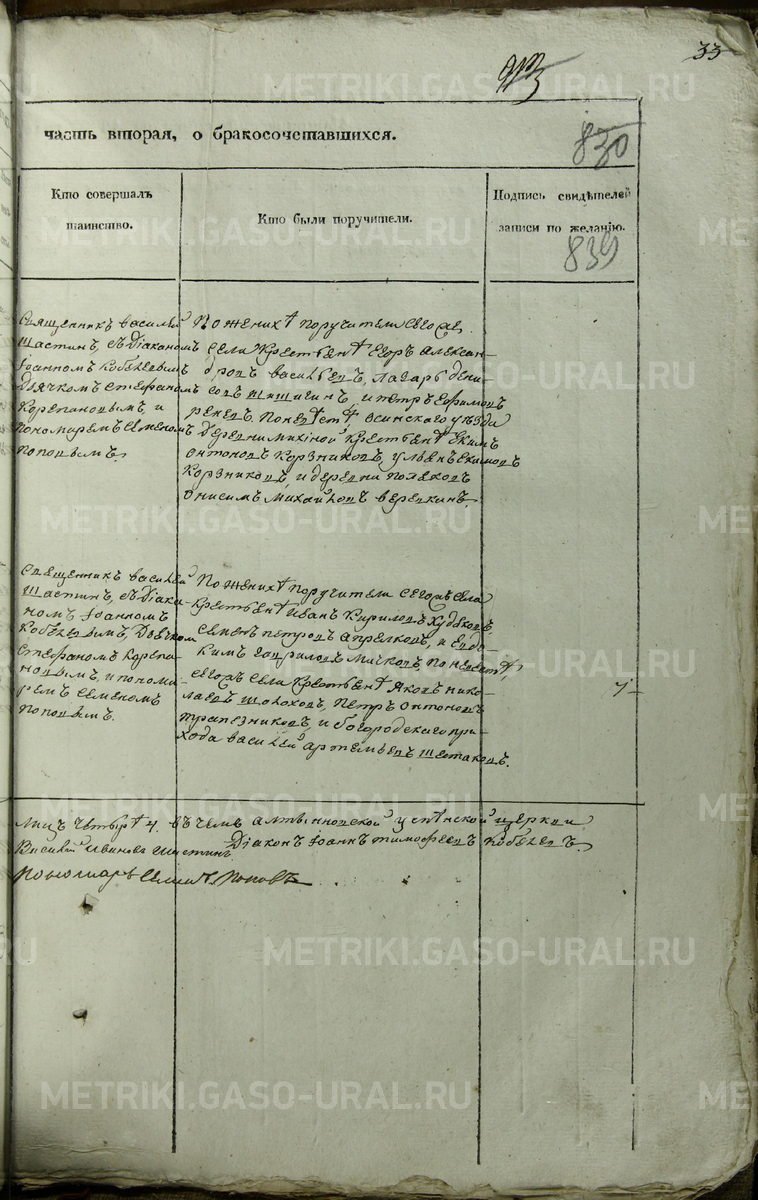 33
METRIKI.GASO-URAL.RU
часть вторая, о бракосочетавшихся.
830
Кто совершалъ
таинство.
Кто были поручители.
Подпись свидѣтелей
записи по желанію.
839
Священникъ василей
Шастинъ, съ діакономъ
Іоанномъ Кобылевымъ
дьячкомъ стефаномъ
Корепановымъ, и
пономаремъ семеномъ
поповымъ.
По женихѣ поручители сего же
села крестьянѣ егоръ алексан-
дровъ васильевъ, лазарь дени-
совъ шишигинъ, и петръ ефимовъ
по невѣстѣ осинскаго уѣзда
деревни крестьянѣ екимъ
онтоновъ корзниковъ ульянъ екимовъ
корзниковъ, и деревни
онисимъ михайловъ веревкинъ,
METRIKI.GASO-URAL.RU
Священникъ василей
Шастинъ, съ діако-
номъ іоанномъ
Кобылевымъ, дьячком
стефаномъ корепа-
новымъ, и понома-
ремъ семеномъ
поповымъ.
По женихѣ поручители сегожъ села
крестьянѣ иванъ кириловъ худяковъ,
семенъ петровъ апрелковъ, и евдо-
кимъ гавриловъ по невѣстѣ,
сегожъ села крестьянѣ яковъ нико-
лаевъ шолоховъ, петръ онтоновъ
трапезниковъ, и богородскаго при-
хода василей артемьевъ шестаковъ.
METRIKI.GASO-URAL.RU
лицъ четыре 4. въ чемъ алтынновской успѣнской церкви
Василей Ивановъ Шастинъ, Діаконъ Іоаннъ тимофеевъ Кобылевъ.
Пономарь Семенъ Поповъ
METRIKI.GASO-URAL.RU
METRIKI.GASO-URAL.RU